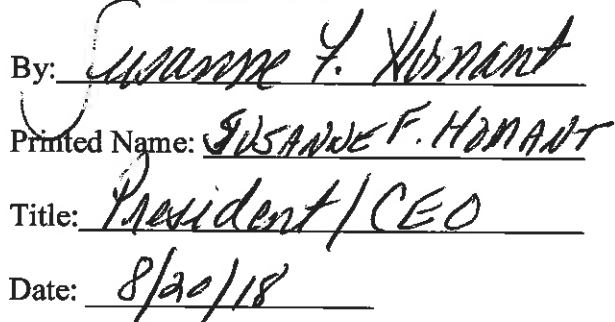 By: Susanne F. Homant
Printed Name: SUSANNE F. HOMANT
Title: President/CEO
Date: 8/20/18